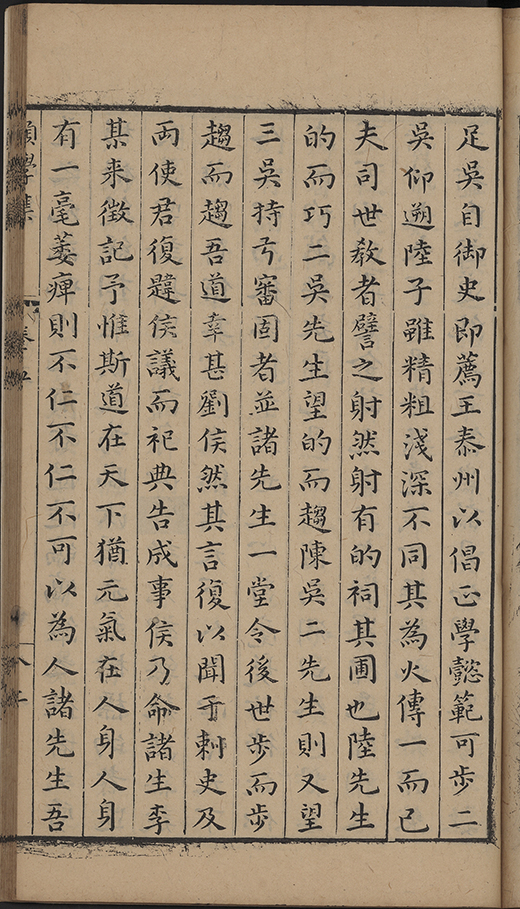 足吳自御史即薦王泰州以倡正學懿範可步二
吳仰遡陸子雖精粗淺深不同其為火傳一而已
夫司世敎者譬之射然射有的祠其圃也陸先生
的而巧二吳先生望的而趨陳吳二先生則又望
三吳持弓審固者並諸先生一堂令後世步而步
趨而趨吾道幸甚劉侯然其言復以聞于剌史及
兩使君復韙侯議而祀典告成事侯乃命諸生李
某来徵記予惟斯道在天下猶元氣在人身人身
有一毫萎痺則不仁不仁不可以為人諸先生吾